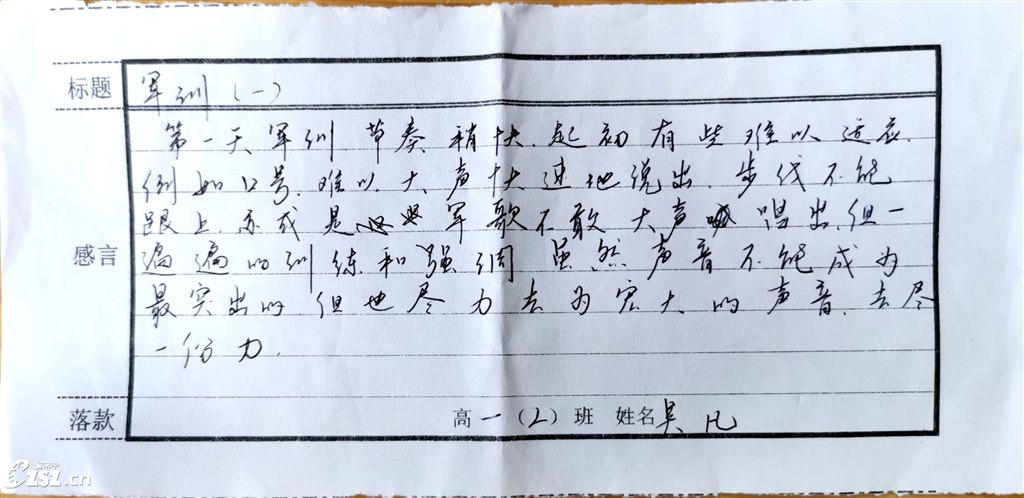 标题 军训(一)
第一天军训节奏稍快,起初有些难以适应.
例如口号,难以大声快速地说出,步伐不能
跟上,亦或是军歌不敢大声唱出,但一
遍遍的训练和强调 虽然声音不能成为
感言
最突出的 但也尽力去为宏大的声音,去尽
一份力.
落款 高一(2)班 姓名 吴凡
E151.cn